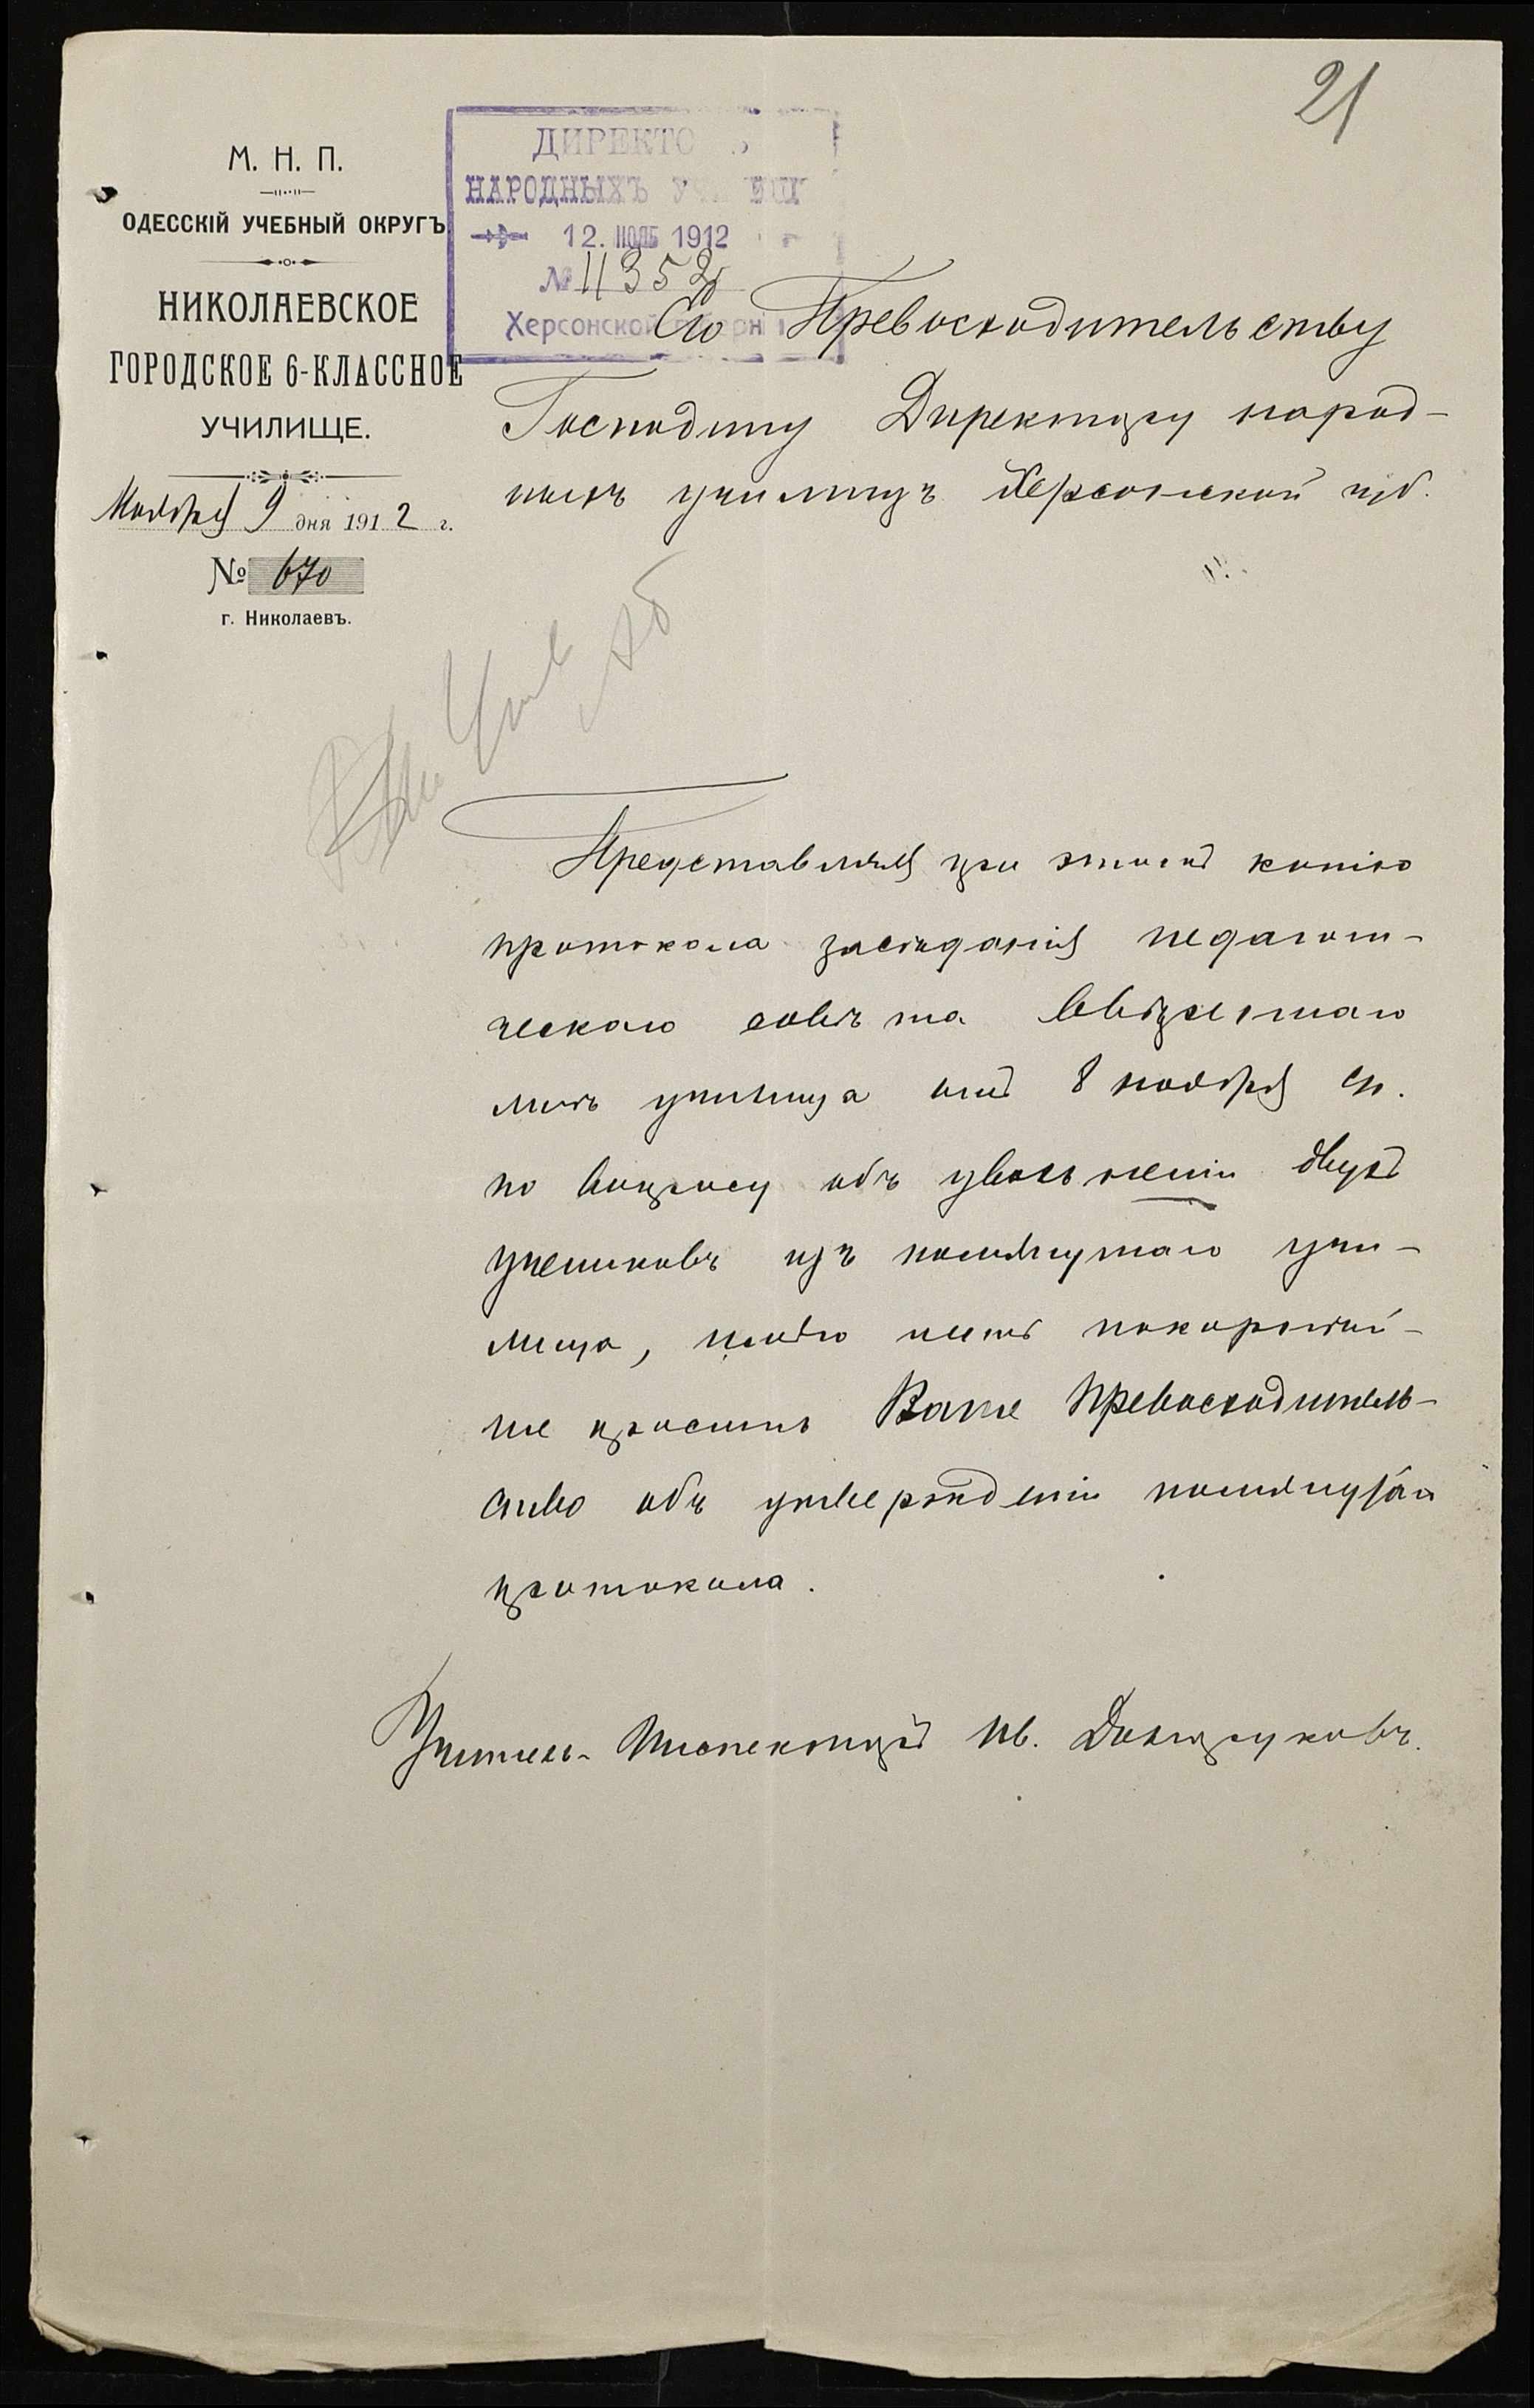 21
М. Н. П.
ОДЕССКІЙ УЧЕБНЫЙ ОКРУГЪ
НИКОЛАЕВСКОЕ
ГОРОДСКОЕ 6-КЛАССНОЕ
УЧИЛИЩЕ.
Ноября 9 дня 1912 г.
№ 670
г. Николаевъ.
НАРОДНЫХЪ
12. НОЯБ 1912
№ 11352
Херсонской
Его Превосходительству
Господину Директору народ-
ныхъ училищъ Херсонской губ.
Представляя при этомъ копію
протокола засѣданія педагоги-
ческаго совѣта ввѣреннаго
мнѣ училища отъ 8 ноября с/г.
по вопросу объ увольненіи двухъ
учениковъ изъ помянутаго учи-
лища, имѣю честь покорнѣй-
ше просить Ваше Превосходитель-
ство объ утвержденіи помянутаго
протокола.
Учитель-Инспекторъ Ив.